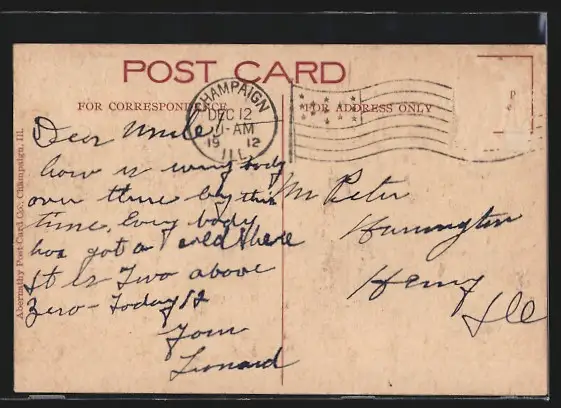 POST CARD
FOR CORRESPONDENCE
FOR ADDRESS ONLY
CHAMPAIGN
DEC 12
-AM
19 12
ILL.
Dear Uncle
how is every body
over there by this
time. Every body
has got a cold here
It is Two above
Zero - Today 12
Your
Leonard
Mr Peter
Harrington
Henry
Ill
Abernathy Post Card Co., Champaign, Ill.